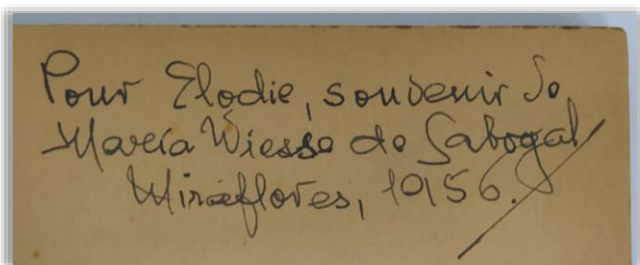 Pour Elodie, souvenir de
María Wiesse de Sabogal
Miraflores, 1956.